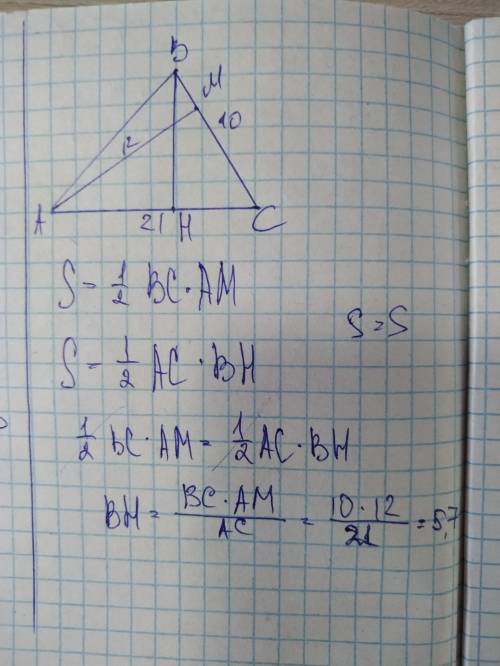 B
M
10
12
A
21
H
C
S = 1/2 BC · AM
S = S
S = 1/2 AC · BH
1/2 BC · AM = 1/2 AC · BH
BH = BC · AM / AC = 10 · 12 / 21 = 5,7